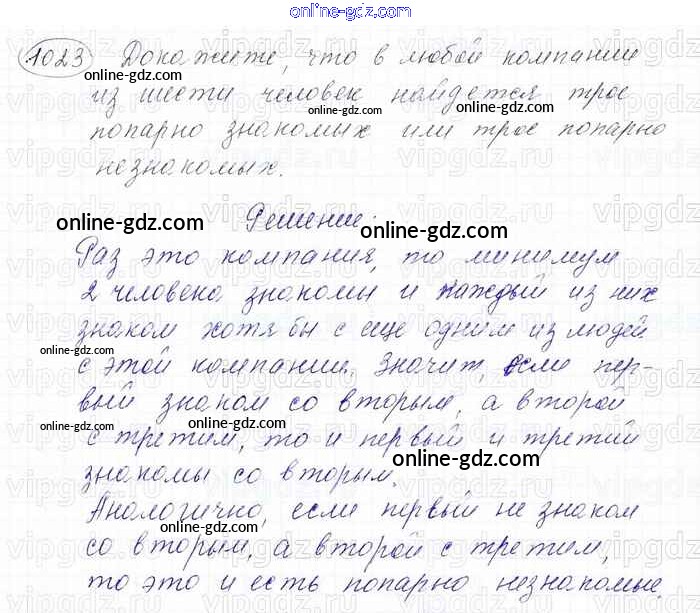 online-gdz.com
1023 Докажите, что в любой компании
online-gdz.com
из шести человек найдется трое
online-gdz.com online-gdz.com
попарно знакомых или трое попарно
незнакомых.
online-gdz.com
Решение:
online-gdz.com online-gdz.com
Раз это компания, то минимум
2 человека знакомы и каждый из них
знаком хотя бы с еще одним из людей
online-gdz.com online-gdz.com
с этой компании. Значит, если пер-
вый знаком со вторым, а второй
с третим, то и первый и третий
online-gdz.com
знакомы со вторым.
Аналогично, если первый не знаком
online-gdz.com online-gdz.com
со вторым, а второй с третим,
то это и есть попарно незнакомые.
online-gdz.com
vipgdz.ru